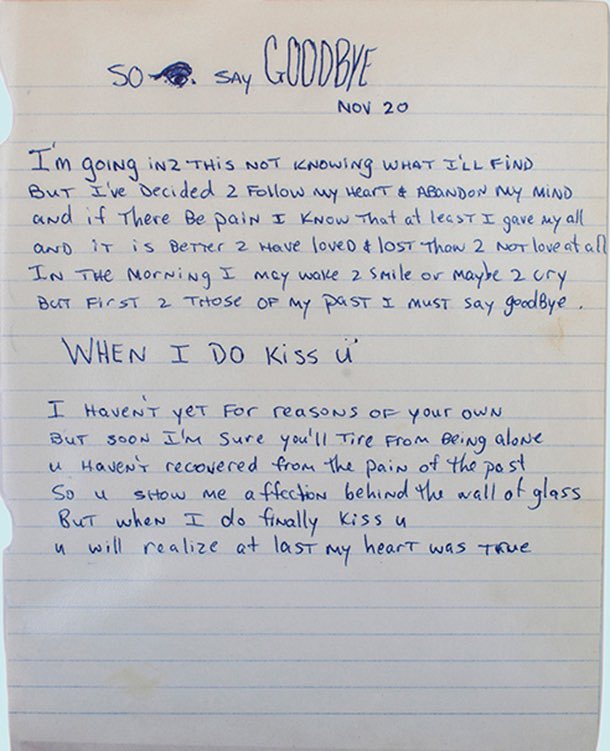 SO 👁. SAY GOODBYE
NOV 20
I'm going in2 this not knowing what I'll find
But I've decided 2 follow my heart & abandon my mind
and if there be pain I know that at least I gave my all
and it is better 2 have loved & lost than 2 not love at all
In the morning I may wake 2 smile or maybe 2 cry
But first 2 those of my past I must say goodbye.
WHEN I DO KISS U
I haven't yet for reasons of your own
But soon I'm sure you'll tire from being alone
u haven't recovered from the pain of the past
So u show me affection behind the wall of glass
But when I do finally kiss u
u will realize at last my heart was true